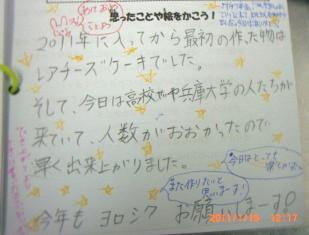 あけおめ
ことよろ
思ったことや絵をかこう!
2011年に入ってから最初の作った物は
レアチーズケーキでした。
そして、今日は高校や兵庫大学の人たちが
来ていて、人数がおおかったので
早く出来上がりました。
今日はとっても
また作りたいと
思いまーす!
今年も ヨロシク お願いしまーす!
2011/1/19 12:17